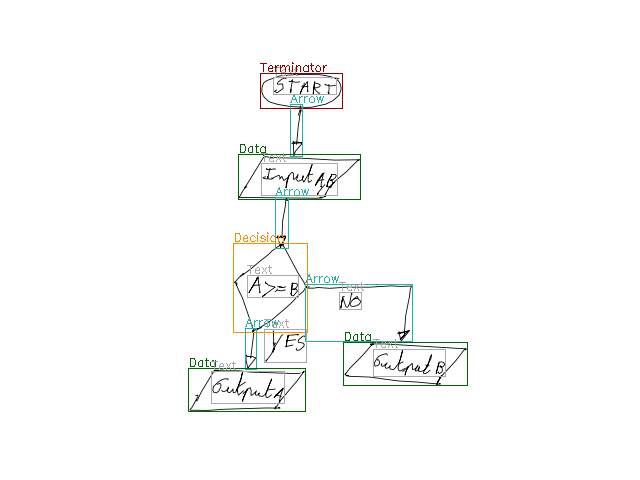 Terminator
Text
START
Arrow
Data
Text
Input A,B
Arrow
Decision
Text
A>=B
Arrow
Text
NO
Arrow
Text
YES
Data
Text
Output B
Data
Text
Output A